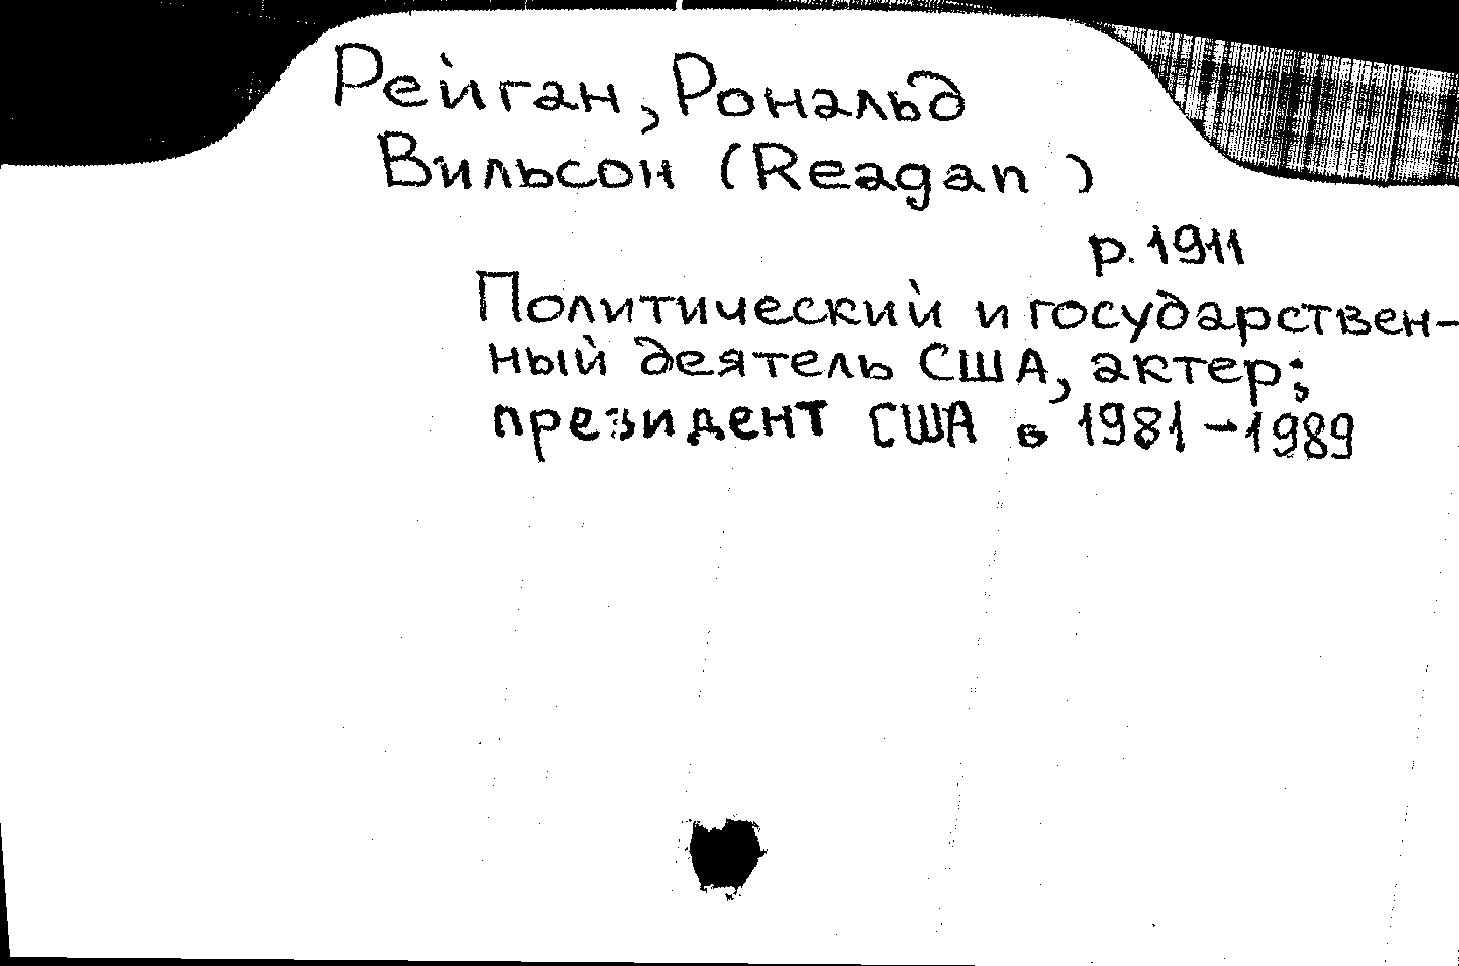 Рейган, Рональд
Вильсон (Reagan )
р. 1911
Политический и государствен-
ный деятель США, актер;
президент США в 1981-1989